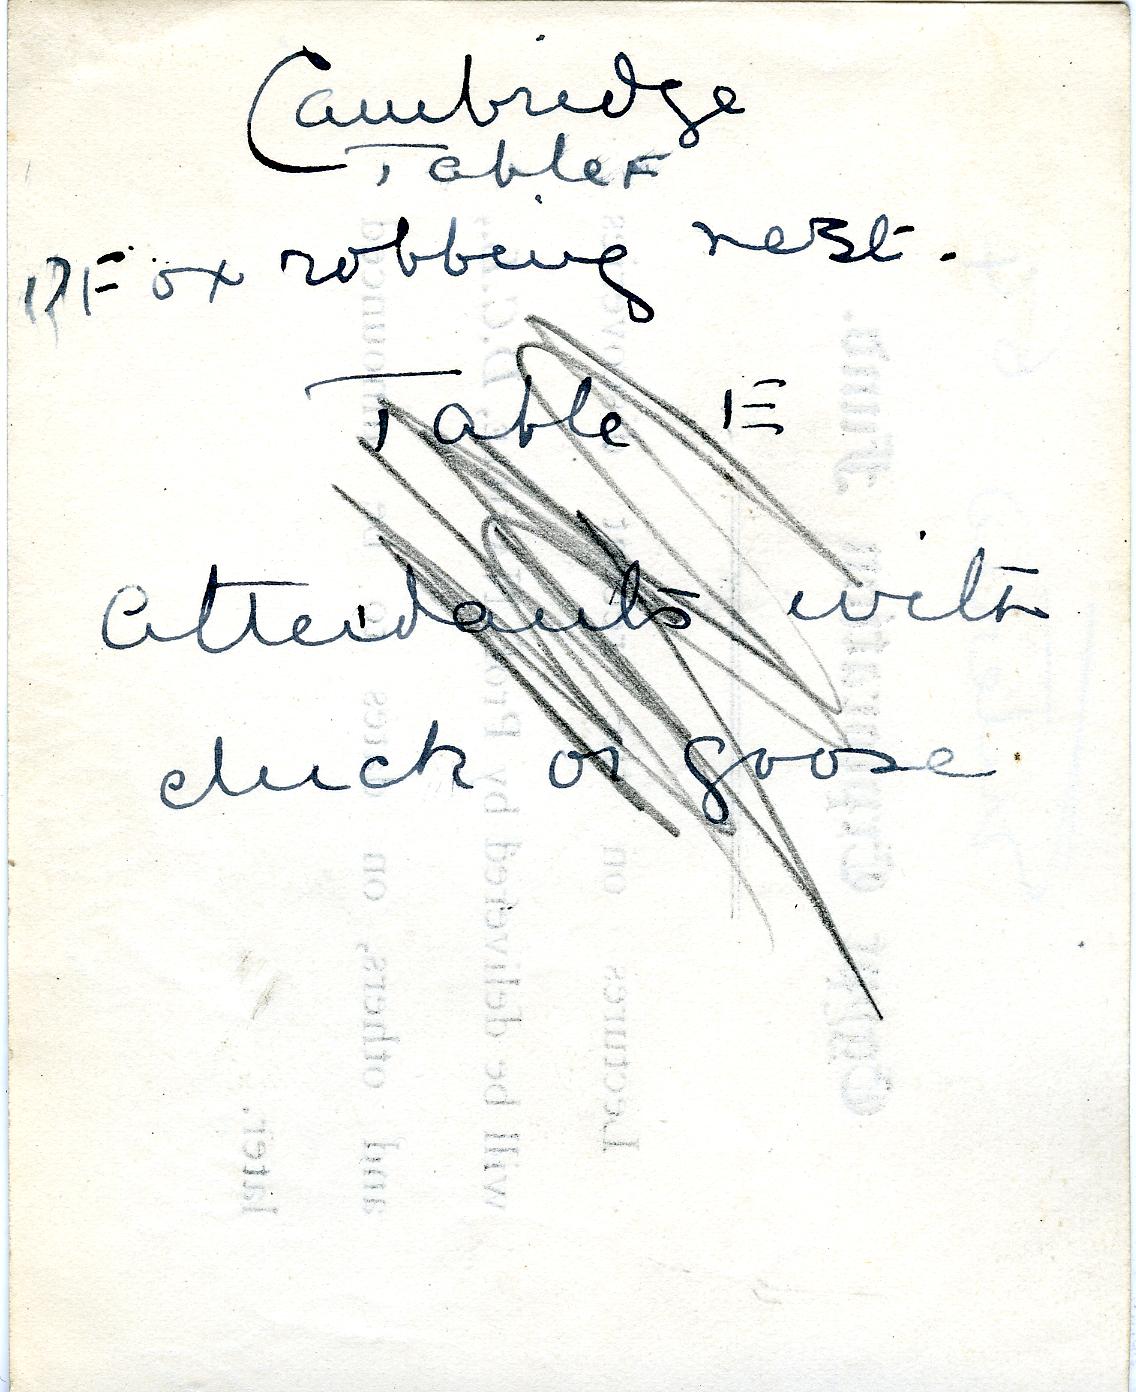 Cambridge
Table F
Fox robbing nest.
Table E
attendants with
duck or goose